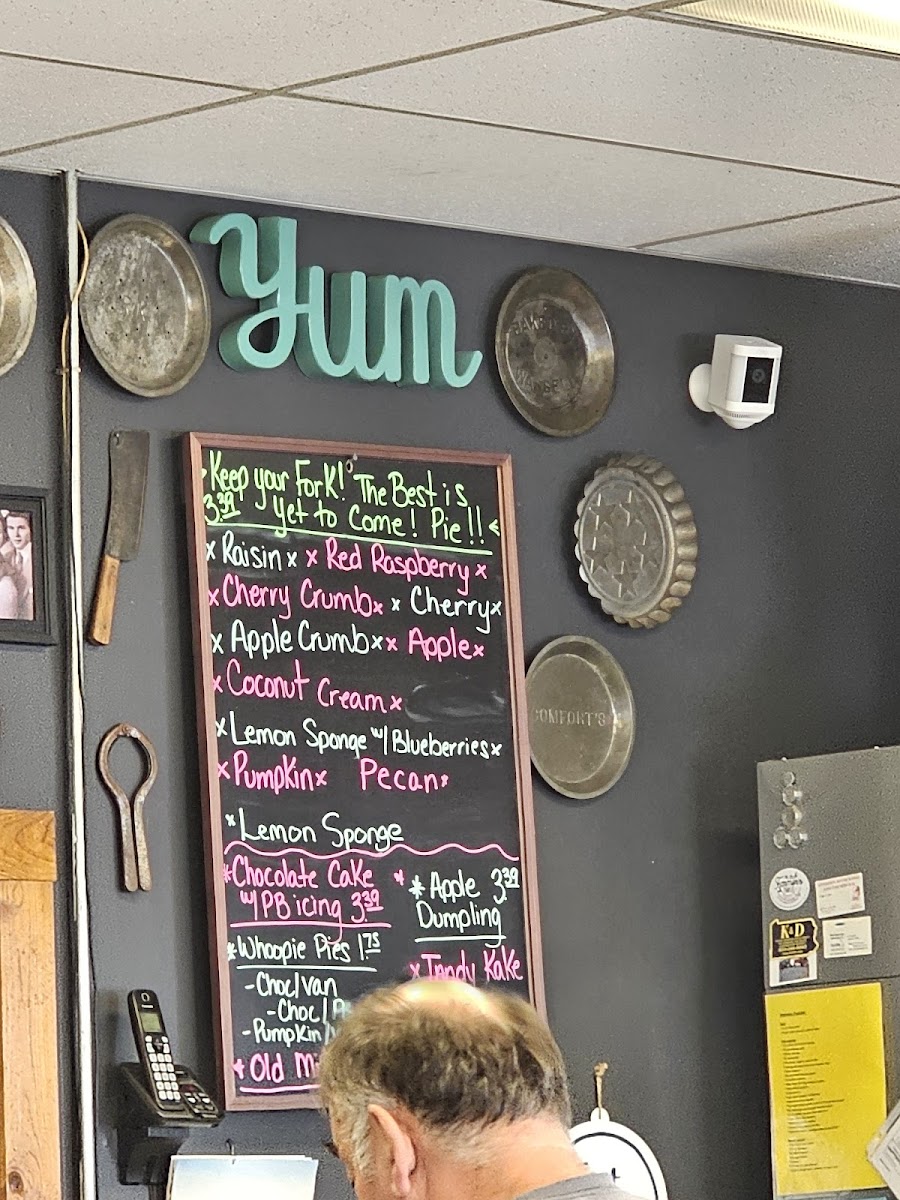 Yum
Keep your Fork! The Best is
3.39 Yet to Come! Pie!!
x Raisin x x Red Raspberry x
x Cherry Crumb x x Cherry x
x Apple Crumb x x Apple x
x Coconut Cream x
x Lemon Sponge w/ Blueberries x
x Pumpkin x Pecan x
x Lemon Sponge
* Chocolate Cake
w/ PB icing 3.39
* Apple 3.39
Dumpling
* Whoopie Pies 1.75
- Choc/Van
- Choc/
- Pumpkin/
x Tandy Kake
* Old
COMFORT'S
K&D